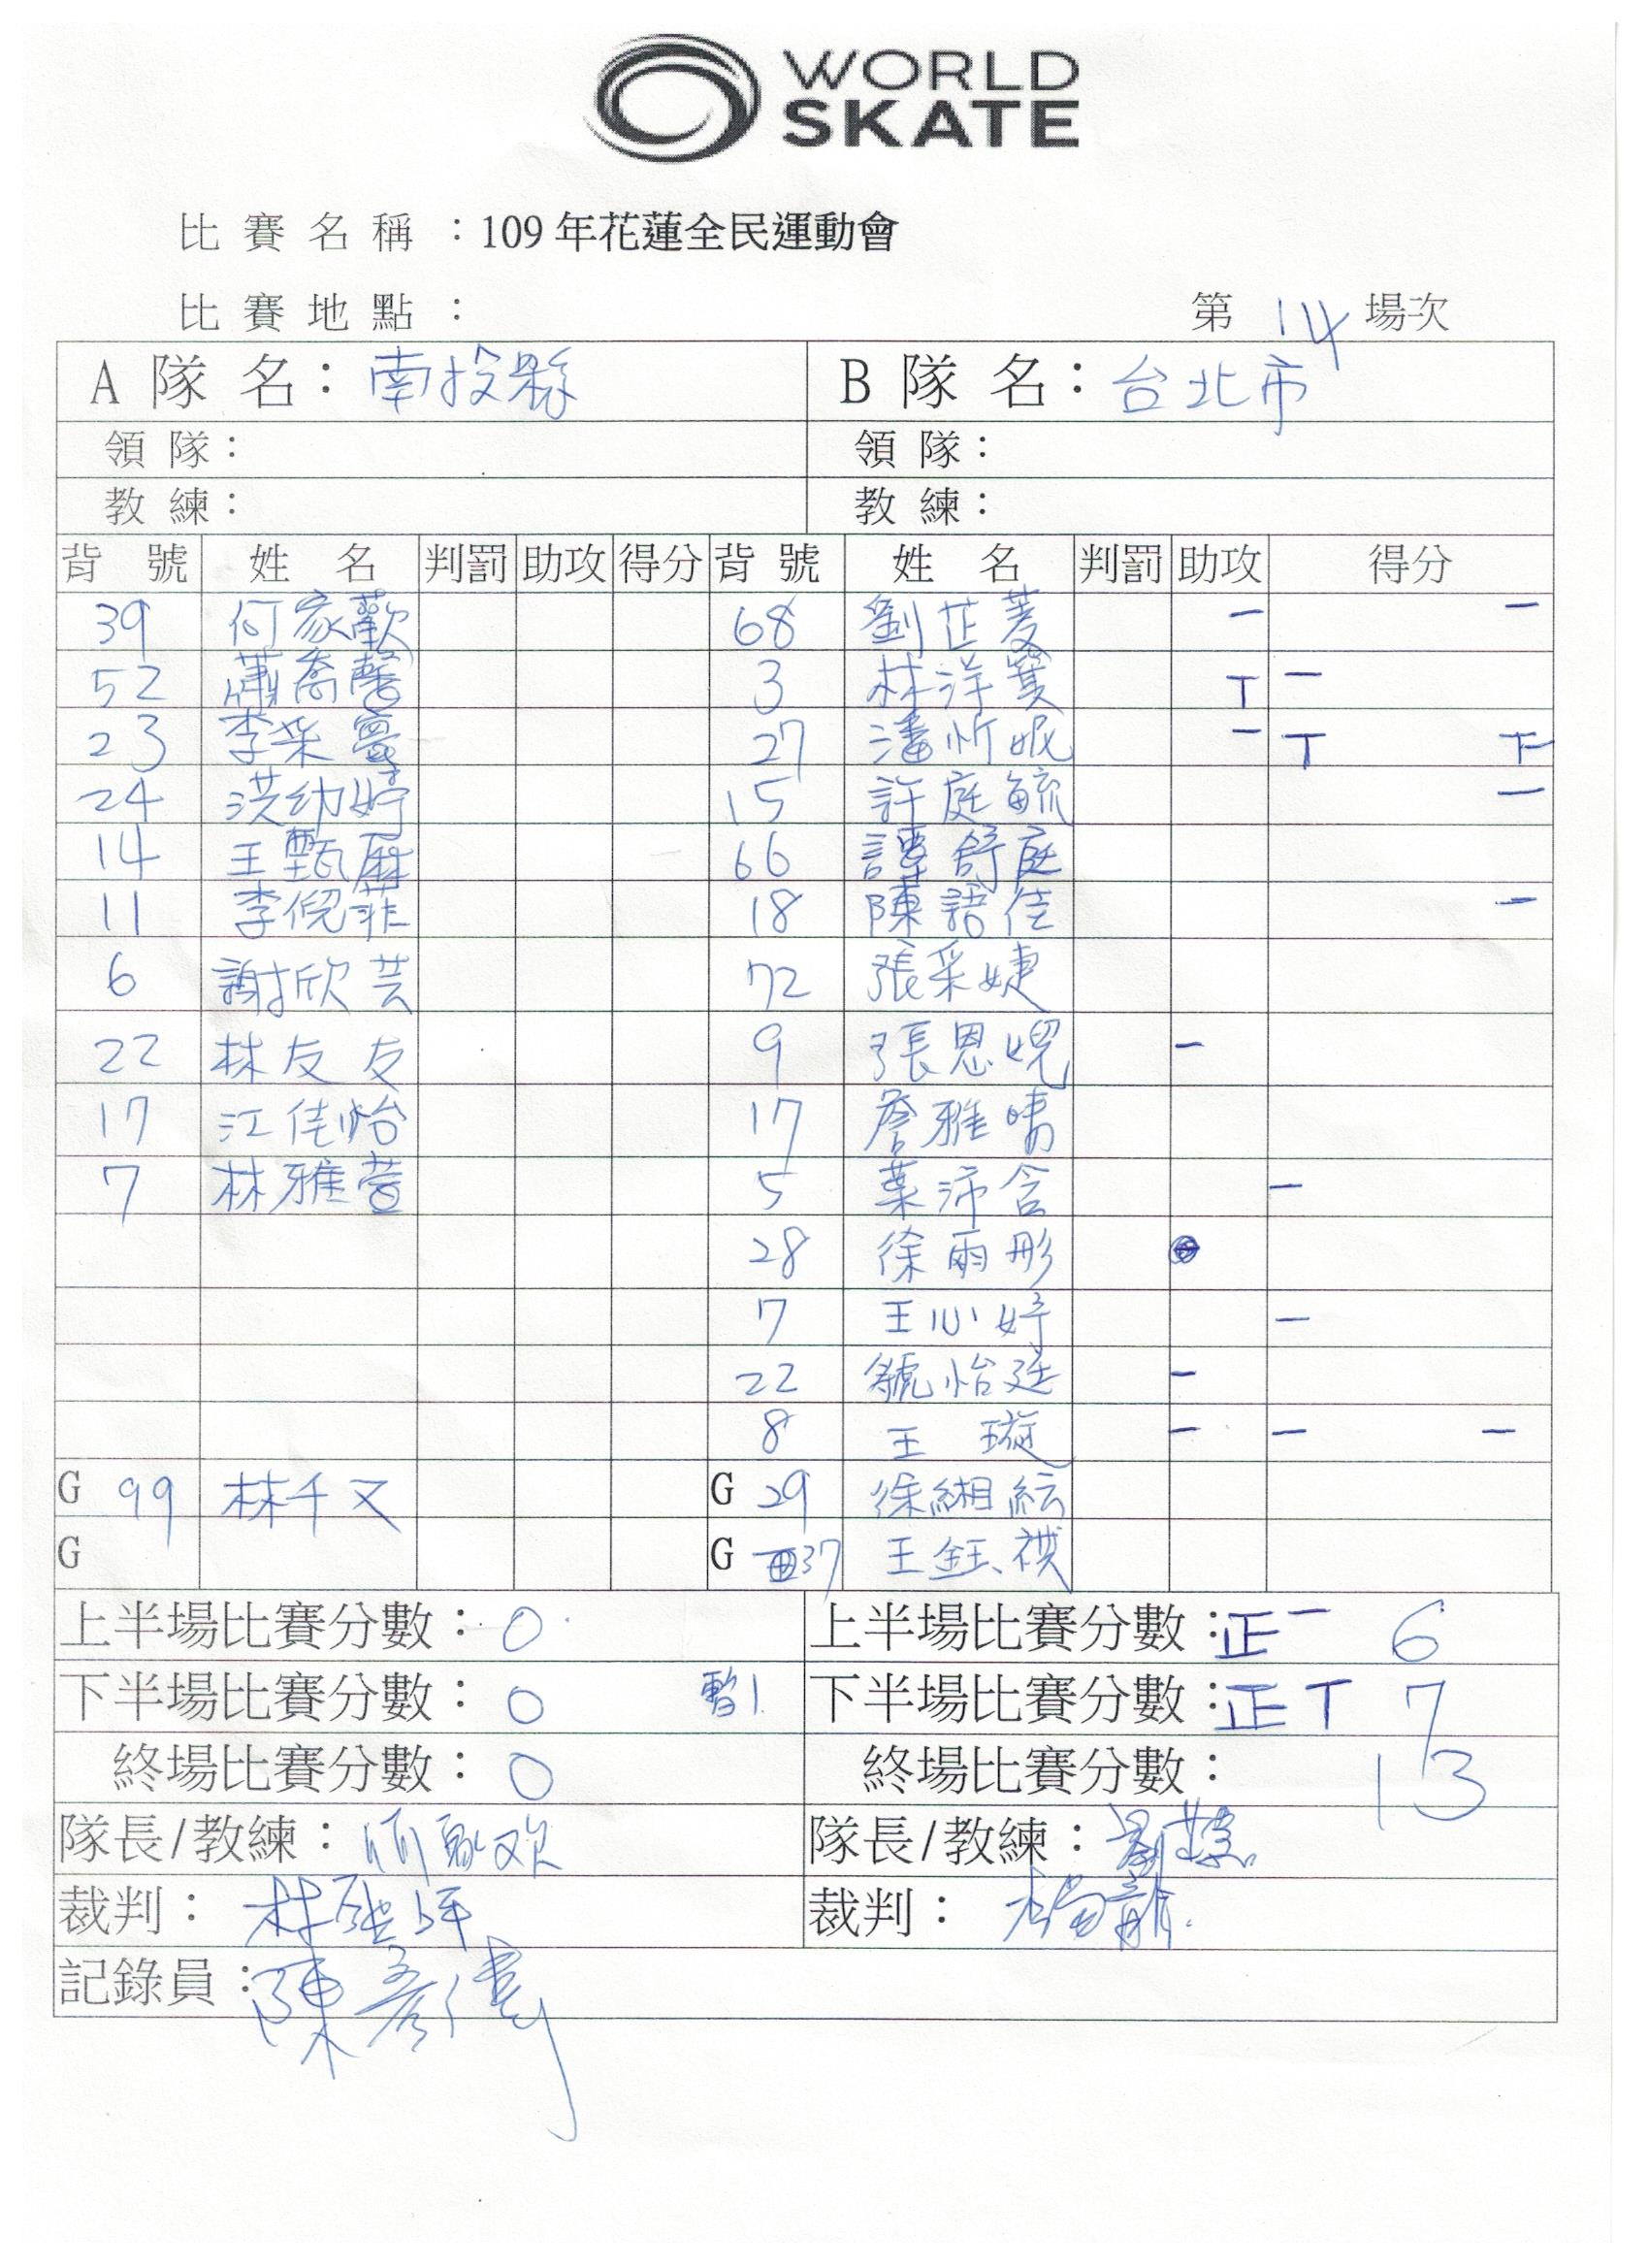 WORLD
SKATE
比賽名稱：109年花蓮全民運動會
比賽地點： 第 14 場次
A 隊名：南投縣 B 隊名：台北市
領隊： 領隊：
教練： 教練：
背號 姓名 判罰 助攻 得分 背號 姓名 判罰 助攻 得分
39 何家歡 68 劉芷菱 一 一
52 蕭喬馨 3 林洋箕 T 一
23 李采 27 潘忻妮 一 T 下
24 洪幼婷 15 許庭毓 一
14 王甄 66 譚舒庭
11 李倪菲 18 陳語佳 一
6 謝欣芸 72 張采婕
22 林友友 9 張恩 一
17 江佳怡 17 詹雅晴
7 林雅萱 5 葉沛含 一
28 徐雨彤
7 王心妤 一
22 號怡廷 一
8 王璇 一 一 一
G 99 林千文 G 29 徐緗紜
G G 37 王鈺祺
上半場比賽分數：0 上半場比賽分數：正一 6
下半場比賽分數：0 暫1 下半場比賽分數：正T 7
終場比賽分數：0 終場比賽分數： 13
隊長/教練： 隊長/教練：
裁判： 裁判：
記錄員：陳彥